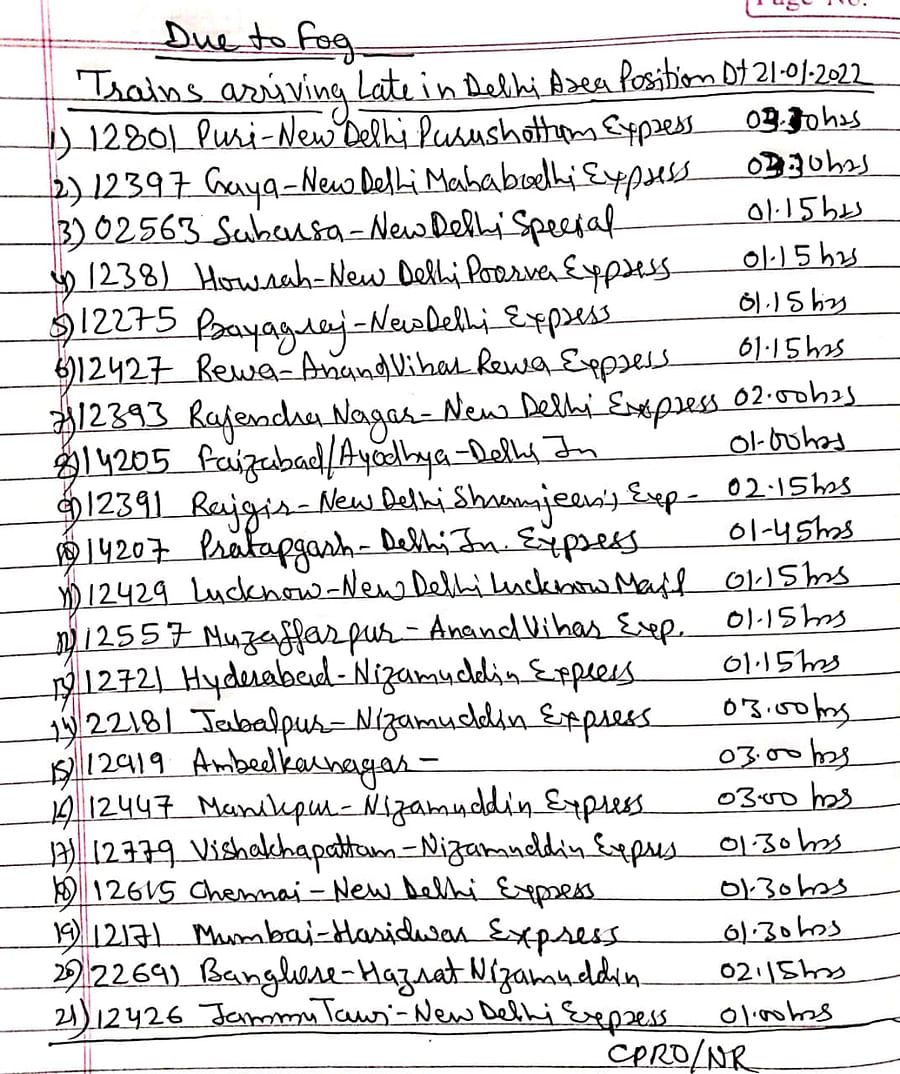 Page No.
Due to Fog
Trains arriving Late in Delhi Area Position Dt 21-01-2022
1) 12801 Puri-New Delhi Purushottam Express 03.30hrs
2) 12397 Gaya-New Delhi Mahabodhi Express 03:30hrs
3) 02563 Saharsa-New Delhi Special 01.15hrs
4) 12381 Howrah-New Delhi Poorva Express 01.15hrs
5) 12275 Prayagraj-New Delhi Express 01.15hrs
6) 12427 Rewa-Anand Vihar Rewa Express 01.15hrs
7) 12393 Rajendra Nagar-New Delhi Express 02.00hrs
8) 14205 Faizabad/Ayodhya-Delhi Jn 01-00hrs
9) 12391 Rajgir-New Delhi Shramjeevi Exp- 02.15hrs
10) 14207 Pratapgarh-Delhi Jn. Express 01-45hrs
11) 12429 Lucknow-New Delhi Lucknow Mail 01.15hrs
12) 12557 Muzaffarpur-Anand Vihar Exp. 01.15hrs
13) 12721 Hyderabad-Nizamuddin Express 01.15hrs
14) 22181 Jabalpur-Nizamuddin Express 03.00hrs
15) 12919 Ambedkarnagar- 03.00hrs
16) 12447 Manikpur-Nizamuddin Express 03.00 hrs
17) 12779 Vishakhapattam-Nizamuddin Exprus 01.30hrs
18) 12615 Chennai-New Delhi Express 01.30hrs
19) 12171 Mumbai-Haridwar Express 01.30hrs
20) 22691 Banglore-Hazrat Nizamuddin 02:15hrs
21) 12426 Jammu Tawi-New Delhi Express 01.00hrs
CPRO/NR